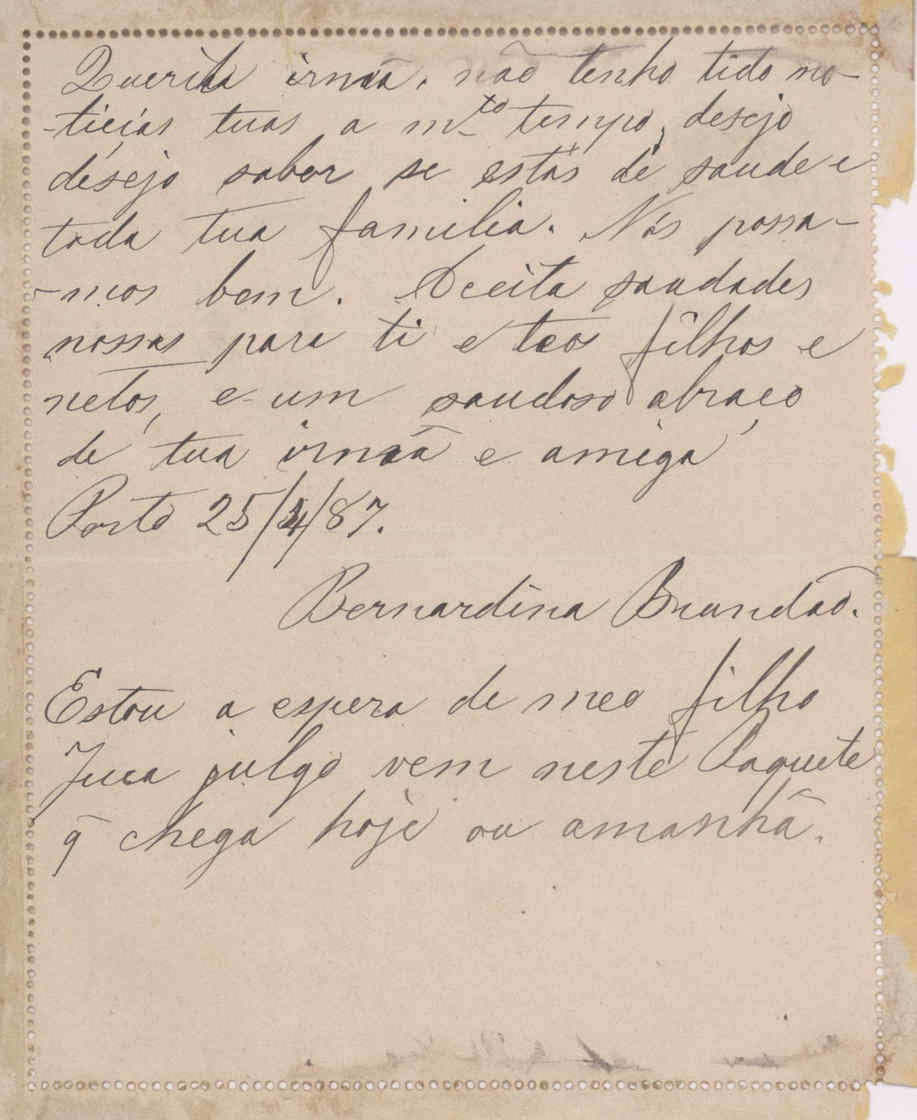 Querida irmãa, não tenho tido no-
-ticias tuas a m.to tempo, desejo
desejo saber se estás de saude e
toda tua familia. Nós possa-
-mos bem. Aceita saudades
nossas para ti e teos filhos e
netos, e um saudoso abraço
de tua irmãa e amiga
Porto 25/4/87.
Bernardina Brandão.
Estou a espera de meo filho
Juca julgo vem neste Paquete
q̃ chega hoje ou amanhã.